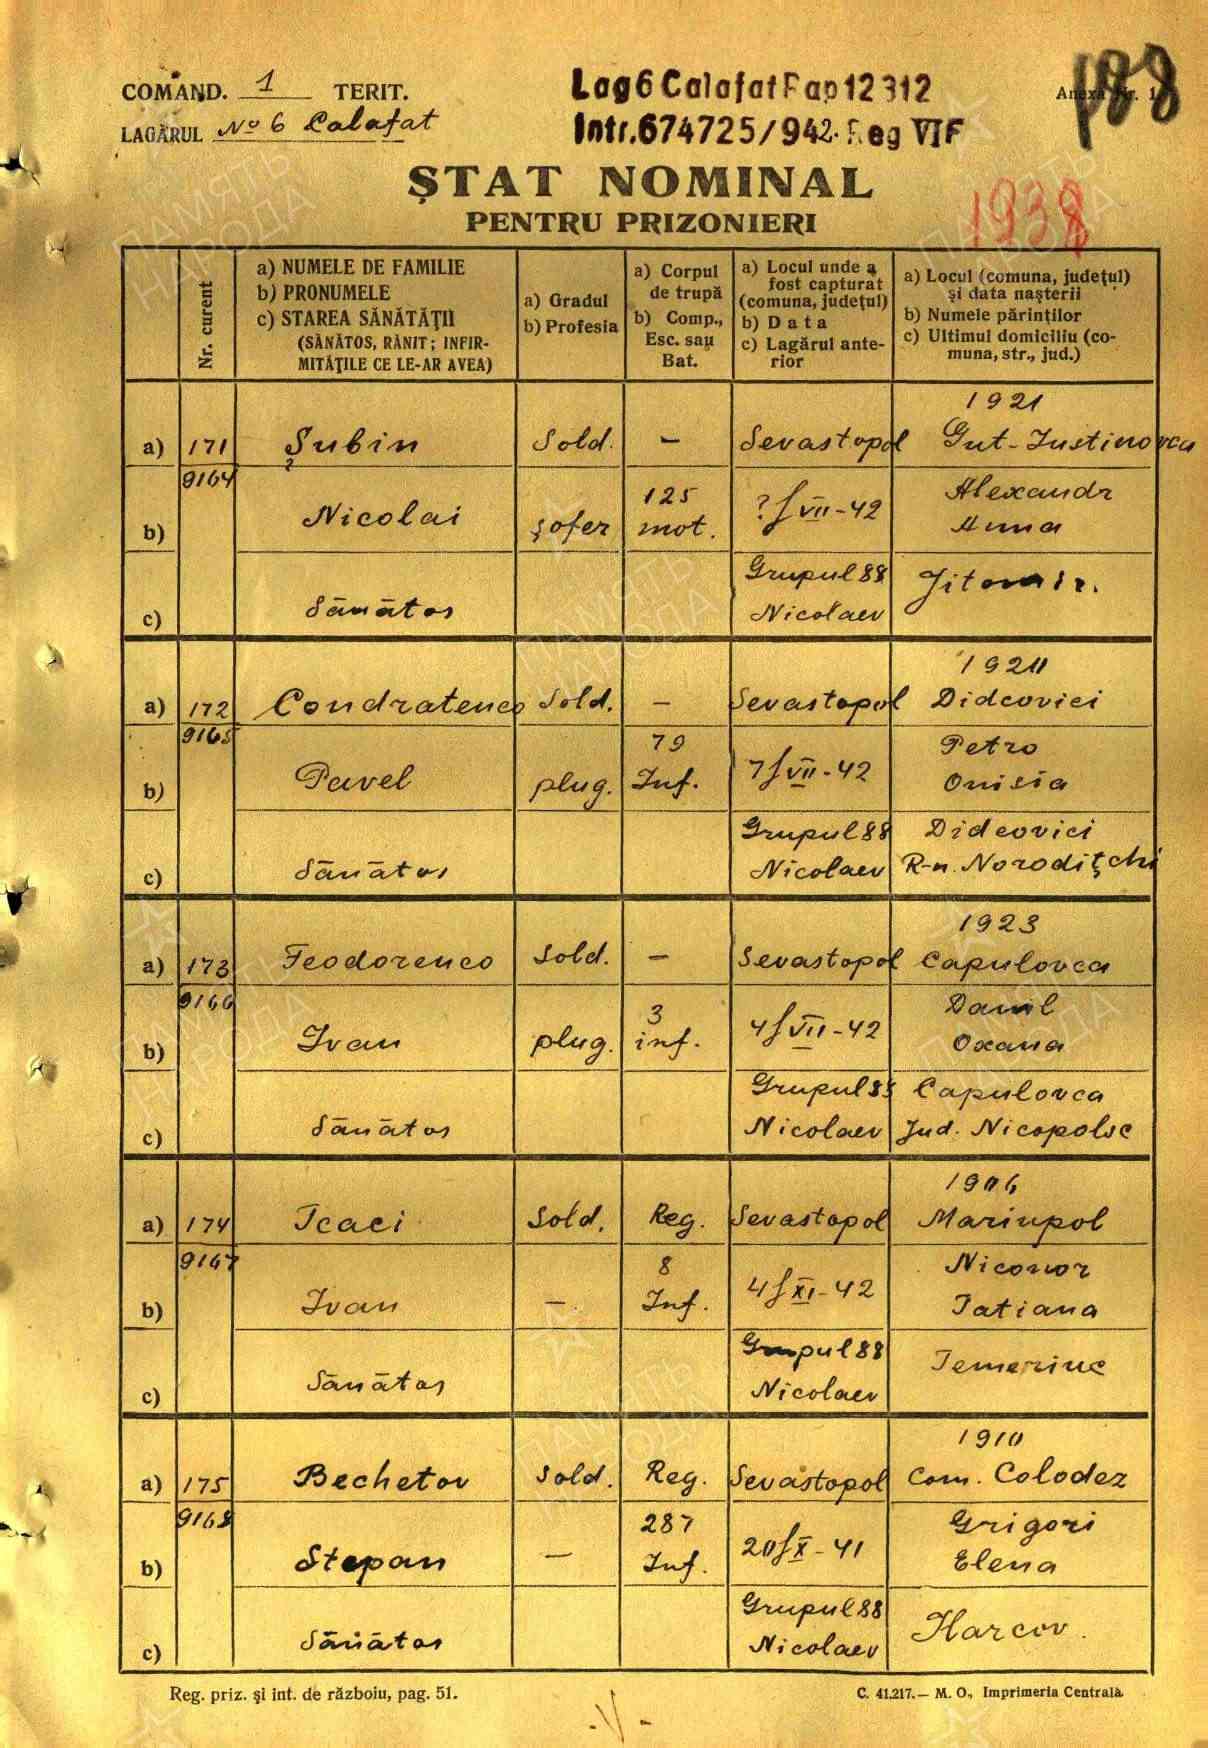 COMAND. 1 TERIT.
LAGĂRUL No 6 Calafat
Lag 6 Calafat Rap 12312
Intr. 674725/942. Reg VIF
Anexa Nr. 1
188
ȘTAT NOMINAL
PENTRU PRIZONIERI
1938
Nr. curent
a) NUMELE DE FAMILIE
b) PRONUMELE
c) STAREA SĂNĂTĂȚII
(SĂNĂTOS, RĂNIT; INFIR-
MITĂȚILE CE LE-AR AVEA)
a) Gradul
b) Profesia
a) Corpul
de trupă
b) Comp.,
Esc. sau
Bat.
a) Locul unde a
fost capturat
(comuna, județul)
b) Data
c) Lagărul ante-
rior
a) Locul (comuna, județul)
și data nașterii
b) Numele părinților
c) Ultimul domiciliu (co-
muna, str., jud.)
1921
a) 171 Șubin Sold. — Sevastopol Gut-Iustinovca
9164
b) Nicolai șofer 125 mot. ?/VII-42 Alexandr
Anna
c) Sănătos Grupul 88 Nicolaev Jitomir.
1920
a) 172 Condratenco Sold. — Sevastopol Didcovici
9165
b) Pavel plug. 79 Inf. 7/VII-42 Petro
Onisia
c) Sănătos Grupul 88 Nicolaev Didcovici
R-n. Norodițchi
1923
a) 173 Feodorenco Sold. — Sevastopol Capulovca
9166
b) Ivan plug. 3 inf. 4/VII-42 Danil
Oxana
c) Sănătos Grupul 88 Nicolaev Capulovca
Jud. Nicopolsc
1906
a) 174 Tcaci Sold. Reg. Sevastopol Mariupol
9167
b) Ivan — 8 Inf. 4/XI-42 Niconor
Tatiana
c) Sănătos Grupul 88 Nicolaev Temeriuc
1910
a) 175 Bechetov Sold. Reg. Sevastopol Com. Colodez
9168
b) Stepan — 287 Inf. 20/X-41 Grigori
Elena
c) Sănătos Grupul 88 Nicolaev Harcov.
Reg. priz. și int. de războiu, pag. 51.
C. 41.217.— M. O., Imprimeria Centrală.
ПАМЯТЬ
НАРОДА